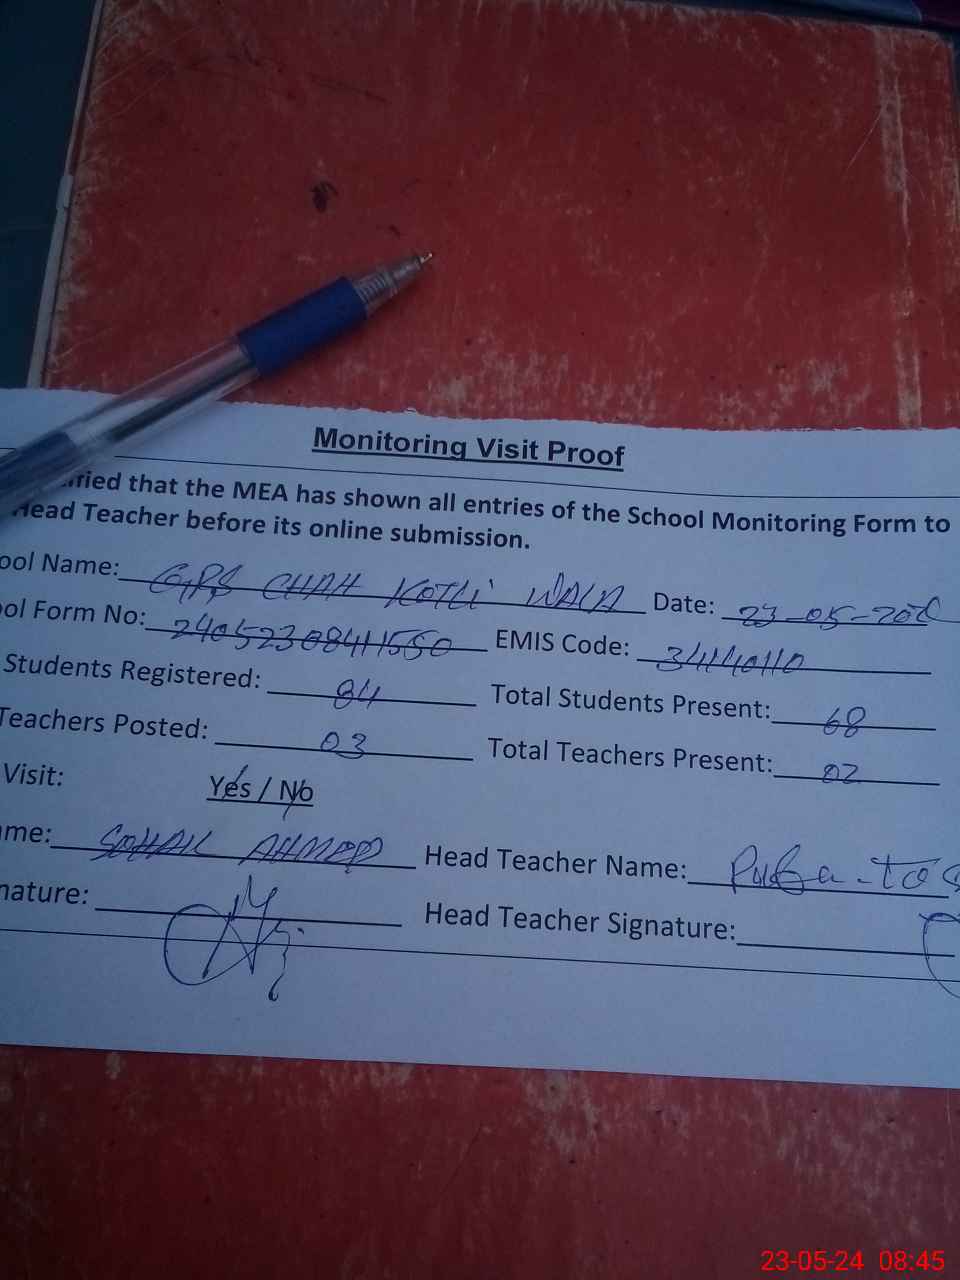 Monitoring Visit Proof
ified that the MEA has shown all entries of the School Monitoring Form to
Head Teacher before its online submission.
ool Name: GPS CHAH KOTLI WALA Date: 23-05-202
ol Form No: 24052308411550 EMIS Code: 34140110
Students Registered: 84 Total Students Present: 68
Teachers Posted: 03 Total Teachers Present: 02
Visit: Yes / No
ame: SOHAIL AHMED Head Teacher Name:
nature: Head Teacher Signature:
23-05-24 08:45